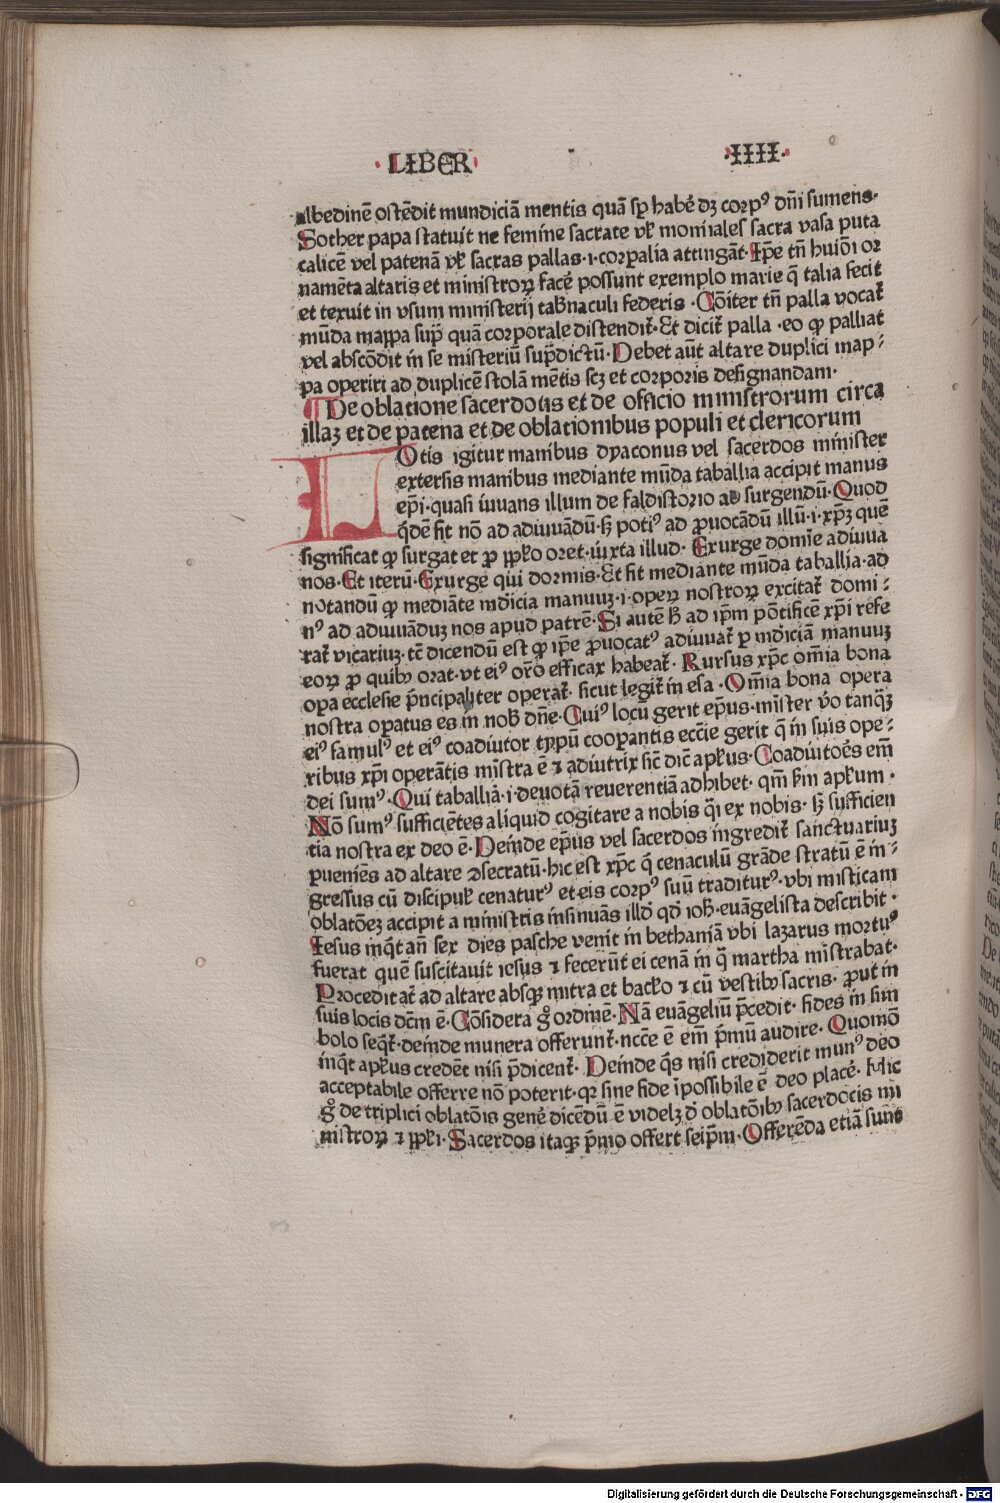 ·LIBER· ·IIII·
albedinē ostēdit mundiciā mentis quā sꝑ habé dꝫ corpꝰ dñi sumens·
Sother papa statuit ne femine sacrate vl̕ moniales sacra vasa puta
calicē vel patenā vl̕ sacras pallas·i·corpalia attingāt·Ip̄e tñ huiōi or
namēta altaris et ministroꝝ facé possunt exemplo marie q̄ talia fecit
et texuit in vsum ministerij tab̄naculi federis ·Cōiter tñ palla vocat̄
mūda mappa supˀ quā corporale distendit̄·Et dicit̄ palla ·eo ꝙ palliat
vel abscōdit in se misteriū supˀdictū·Debet aūt altare duplici map⸗
pa operiri ad duplicē stolā mētis scꝫ et corporis designandam·
De oblatione sacerdotis et de officio ministrorum circa
illaꝫ et de patena et de oblationibus populi et clericorum
LOtis igitur manibus dyaconus vel sacerdos minister
extersis manibus mediante mūda taballia accipit manus
ep̄i·quasi iuuans illum de faldistorio ad surgendū·Quod
q̇dē fit nō ad adiuuādū·sꝫ potiꝰ ad ꝓuocādū illū·i·xp̄ꝫ quē
significat ꝙ surgat et ꝓ pp̄lo oret·iuxta illud· Exurge domie adiuua
nos·Et iterū·Exurge qui dormis·Et fit mediante mūda taballia·ad
notandū ꝙ mediāte mdicia manuuꝫ·i·opeꝝ nostroꝝ excitat̄ domi⸗
nꝰ ad adiuuāduꝫ nos apud patrē·Si autē h̄ ad ip̄m pōtificē xp̄i refe
rat̄ vicariuꝫ·tē dicendū est ꝙ ip̄e ꝓuocatꝰ adiuuat̄ ꝑ mdiciā manuuꝫ
eoꝝ ꝓ quibꝰ orat·vt eiꝰ orō efficax habeat̄· Rursus xp̄c om̄ia bona
opa ecclesie pˀncipaliter operat̄· sicut legit̄ in esa ·Om̄ia bona opera
nostra opatus es in nob̄ dñe·Cuiꝰ locū gerit ep̄us·mister v̇o tanꝗꝫ
eiꝰ famulꝰ et eiꝰ coadiutor typū coopantis ecc̄ie gerit q̄ in suis ope⸗
ribus xp̄i operātis mīstra ē ⁊ adiutrix sic̄ dic̄ apl̄us·Coadiutoēs em̄
dei sumꝰ·Qui taballia·i·deuota reuerentiā adhibet· qm̄ sˀm apl̄um ·
Nō sumꝰ sufficiētes aliquid cogitare a nobis q̇i ex nobis· sꝫ sufficien
tia nostra ex deo ē·Deinde ep̄us vel sacerdos ingredit̄ sanctuariuꝫ
ꝑueniēs ad altare ꝯsecratū·hic est xp̄c q̇ cenaculū grāde stratū ē in⸗
gressus cū discipul̕ cenaturꝰ et eis corpꝰ suū traditurꝰ·vbi misticam
oblatōeꝫ accipit a ministris insinuās illd̄ qd̄ ioh̄·euāgelista describit ·
Iesus inq̇t an̄ sex dies pasche venit in bethaniā vbi lazarus mortuꝰ
fuerat quē suscitauit iesus ⁊ fecerūt ei cenā in q̄ martha mīstrabat·
Procedit at̄ ad altare absqꝫ mitra et bacl̄o ⁊ cū vestibꝰ sacris· ꝓut in
suis locis dc̄m ē·Cōsidera g̊ ordinē·Nā euāgeliū p̄cedit· fides in sim
bolo seq̇t̄·deinde munera offerunt̄·ncc̄e ē em̄ pˀmū audire· Quomō
inq̇t apl̄us credēt nisi p̄dicent̄· Deinde q̇s nisi crediderit munꝰ deo
acceptabile offerre nō poterit·qꝛ sine fide īpossibile ē deo placé· Hic
g̊ de triplici oblatōis gené dicēdū ē videlꝫ d̄ oblatōibꝰ sacerdotis mi
nistroꝝ ⁊ pp̄li·Sacerdos itaqꝫ pˀmo offert seip̄m·Offerēda etiā sunt
Digitalisierung gefördert durch die Deutsche Forschungsgemeinschaft - DFG